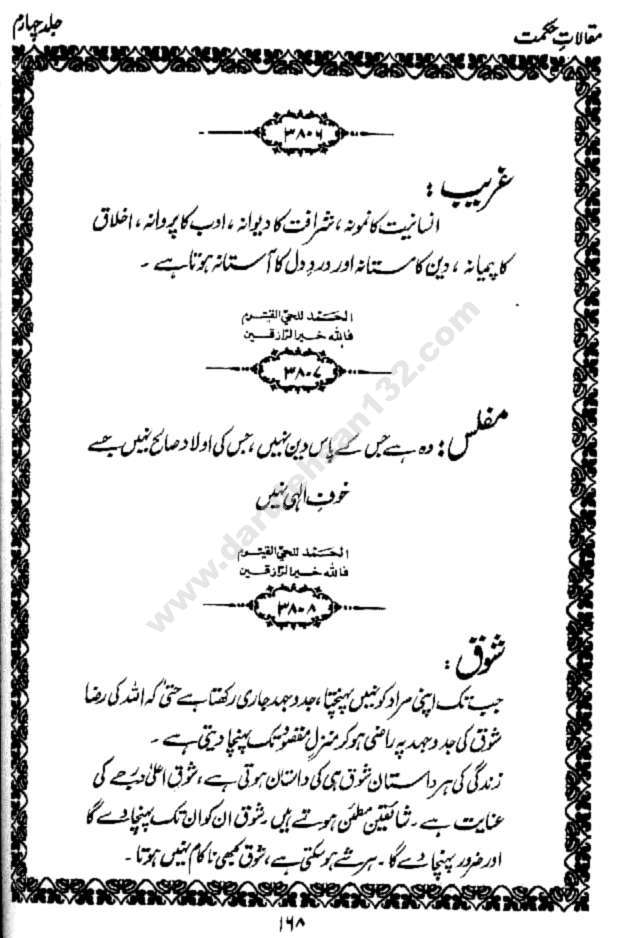 مقالاتِ حکمت
جلد چہارم
۳۸۰۶
غریب :
انسانیت کا نمونہ ، شرافت کا دیوانہ ، ادب کا پروانہ ، اخلاق
کا پیمانہ ، دین کا مستانہ اور دردِ دل کا آستانہ ہوتا ہے ۔
الحَمْد للحیّ القیّوم
فاللہ خیر الرّازقین
۳۸۰۷
مفلس : وہ ہے جس کے پاس دین نہیں ، جس کی اولاد صالح نہیں جسے
خوفِ الٰہی نہیں
الحَمْد للحیّ القیّوم
فاللہ خیر الرّازقین
۳۸۰۸
شوق :
جب تک اپنی مراد کو نہیں پہنچتا ، جدوجہد جاری رکھتا ہے حتیٰ کہ اللہ کی رضا
شوق کی جدوجہد پہ راضی ہو کر منزلِ مقصود تک پہنچا دیتی ہے ۔
زندگی کی ہر داستان شوق ہی کی داستان ہوتی ہے ، شوق اعلیٰ درجے کی
عنایت ہے ۔ شائقین مطمئن ہوتے ہیں ۔ شوق ان کو ان تک پہنچا دے گا
اور ضرور پہنچا دے گا ۔ ہر شے ہو سکتی ہے ، شوق کبھی ناکام نہیں ہوتا ۔
۱۶۸
www.darulehsan132.com